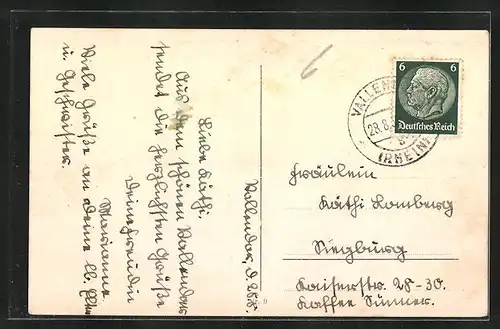 Vallendar, d. 28.8.
Liebe Käthi.
Aus dem schönen Vallendar
sendet die herzlichsten Grüße
Deine Freundin
Marianne
Viele Grüße an Deine lb. Eltern
u. Geschwister.
6
VALLEN
28.8.
(RHEIN)
6 6
Deutsches Reich
Fräulein
Käthi Lomberg
Siegburg
Kaiserstr. 28-30.
Kaffee